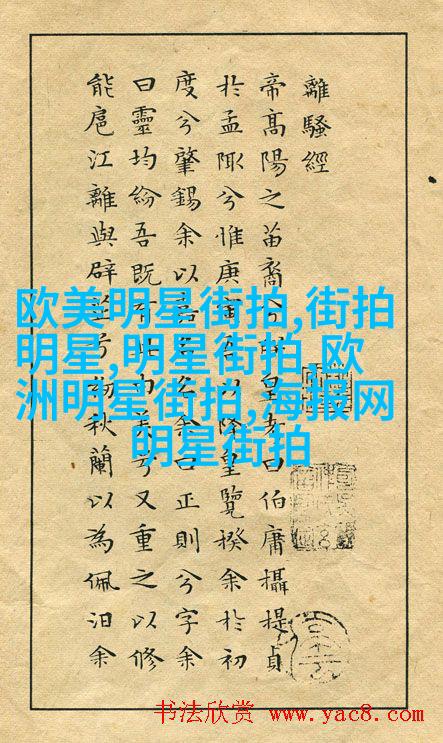 離騷經
帝高陽之苗裔兮朕皇考曰伯庸攝提貞
於孟陬兮惟庚寅吾以降皇覽揆余於初
度兮肇錫余以嘉名名余曰正則兮字余
曰靈均紛吾既有此內美兮又重之以修
能扈江離與辟芷兮紉秋蘭以為佩汩余
欧美明星街拍,街拍
明星,明星街拍,欧
洲明星街拍,海报网
明星街拍
书法欣赏 www.yac8.com